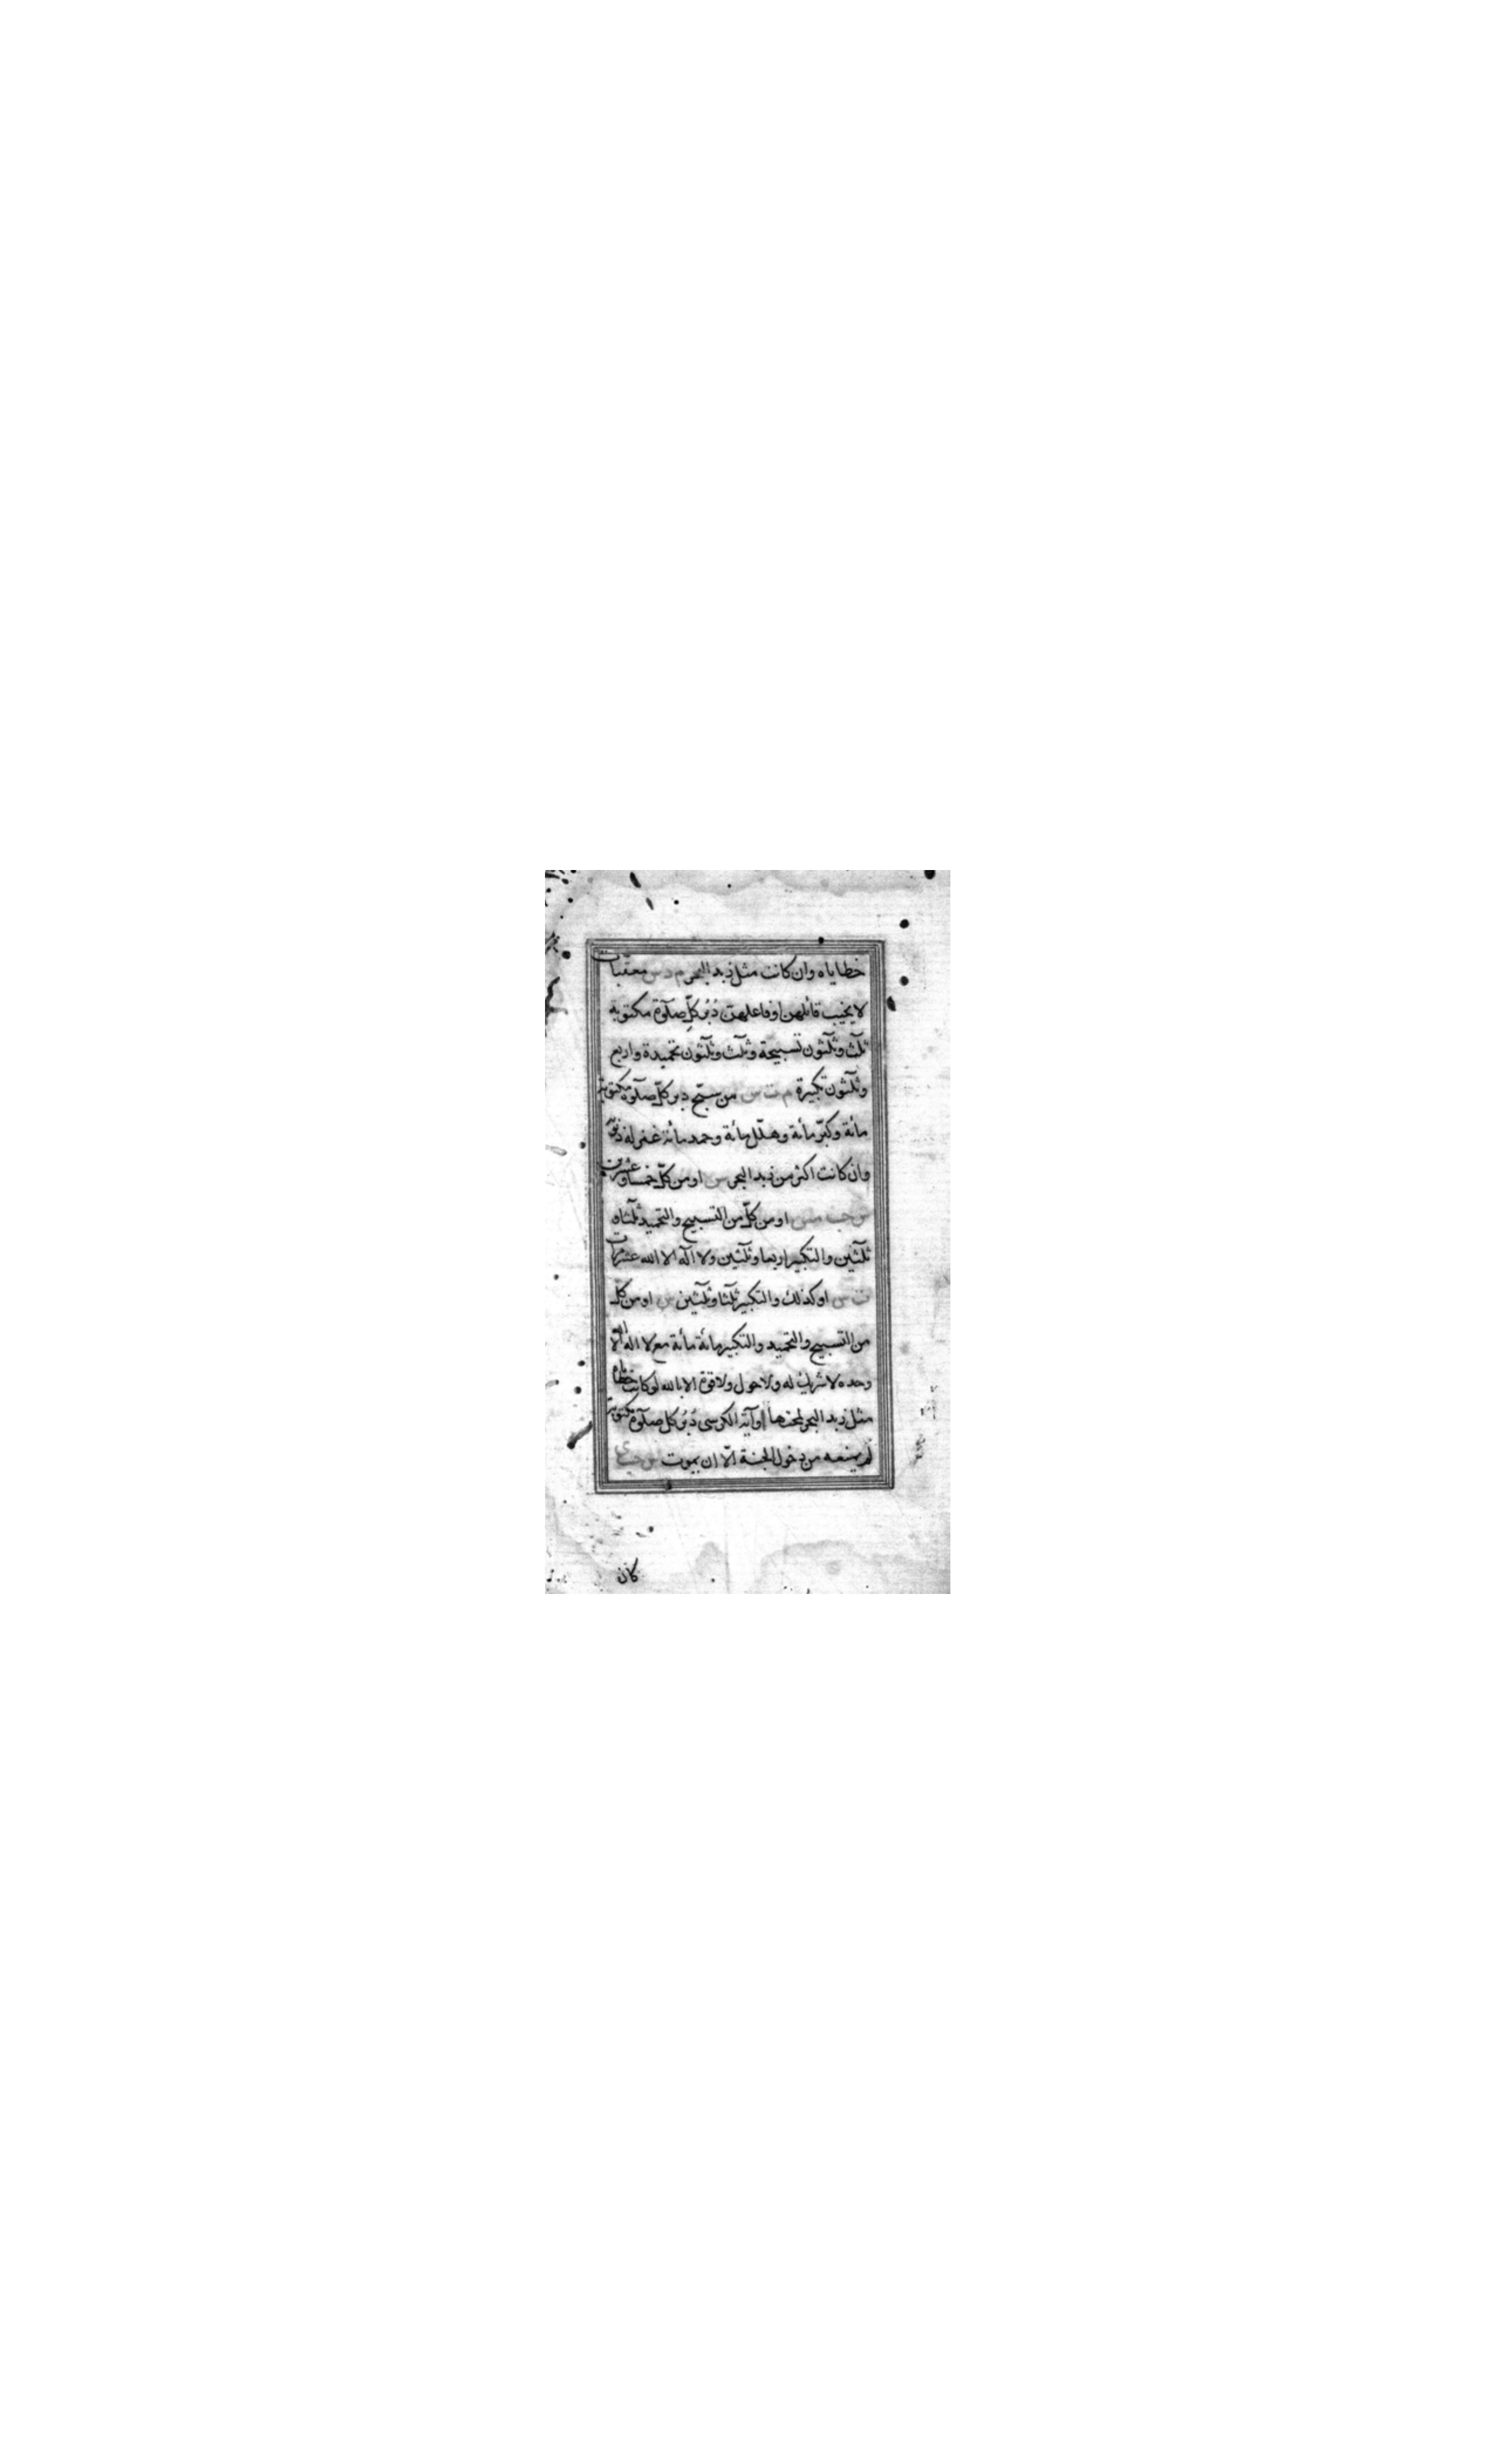 خطاياه وان كانت مثل زبد البحر م د س معقّبات
لا يخيب قائلهن او فاعلهن دُبُر كلّ صلوٰة مكتوبة
ثلٰث وثلٰثون تسبيحة وثلٰث وثلٰثون تحميدة واربع
وثلٰثون تكبيرة م ت س من سبّح دبر كلّ صلوٰة مكتوبة
مائة وكبّر مائة وهلّل مائة وحمد مائة غفر له ذنوبه
وان كانت اكثر من زبد البحر س او من كلّ خمسا وعشرين
س حب مس او من كلّ من التسبيح والتحميد ثلٰثا و
ثلٰثين والتكبير اربعا وثلٰثين ولا اله الا الله عشر مرات
ت س او كذلك والتكبير ثلٰثا وثلٰثين س او من كل
من التسبيح والتحميد والتكبير مائة مائة مع لا اله الا الله
وحده لا شريك له ولا حول ولا قوة الا بالله لو كانت خطاياه
مثل زبد البحر لمحتها ا وآية الكرسى دُبُر كل صلوٰة مكتوبة
لم يمنعه من دخول الجنة الّا ان يموت س حب ى
كان